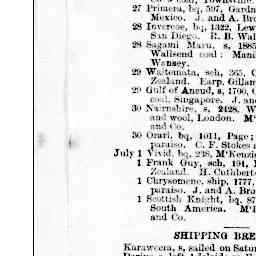 27 Primera, bq, 597, Gardn
Mexico. J. and A. Bro
28 Inverese, bq, 1322, Lew
San Diego. R. B. Wall
28 Sagami Maru, s, 1885
Wallsend coal: Mani
Wansey.
29 Waitemata, sch, 365, C
Zealand. Earp, Gillam
29 Gulf of Ancud, s, 1700, C
coal, Singapore. J. and
30 Nairnshire, s, 2428, W
and wool, London. M'
and Co.
30 Orari, bq, 1011, Page;
paraiso. C. F. Stokes a
July 1 Vivid, bq, 238, M'Kenzie
1 Frank Guy, sch, 191, M
Zealand. H. Cuthbert
1 Chrysomene, ship, 1777,
paraiso. J. and A. Bro
1 Scottish Knight, bq, 87
South America. M'I
and Co.
SHIPPING BRE
Karaweera, s, sailed on Satu